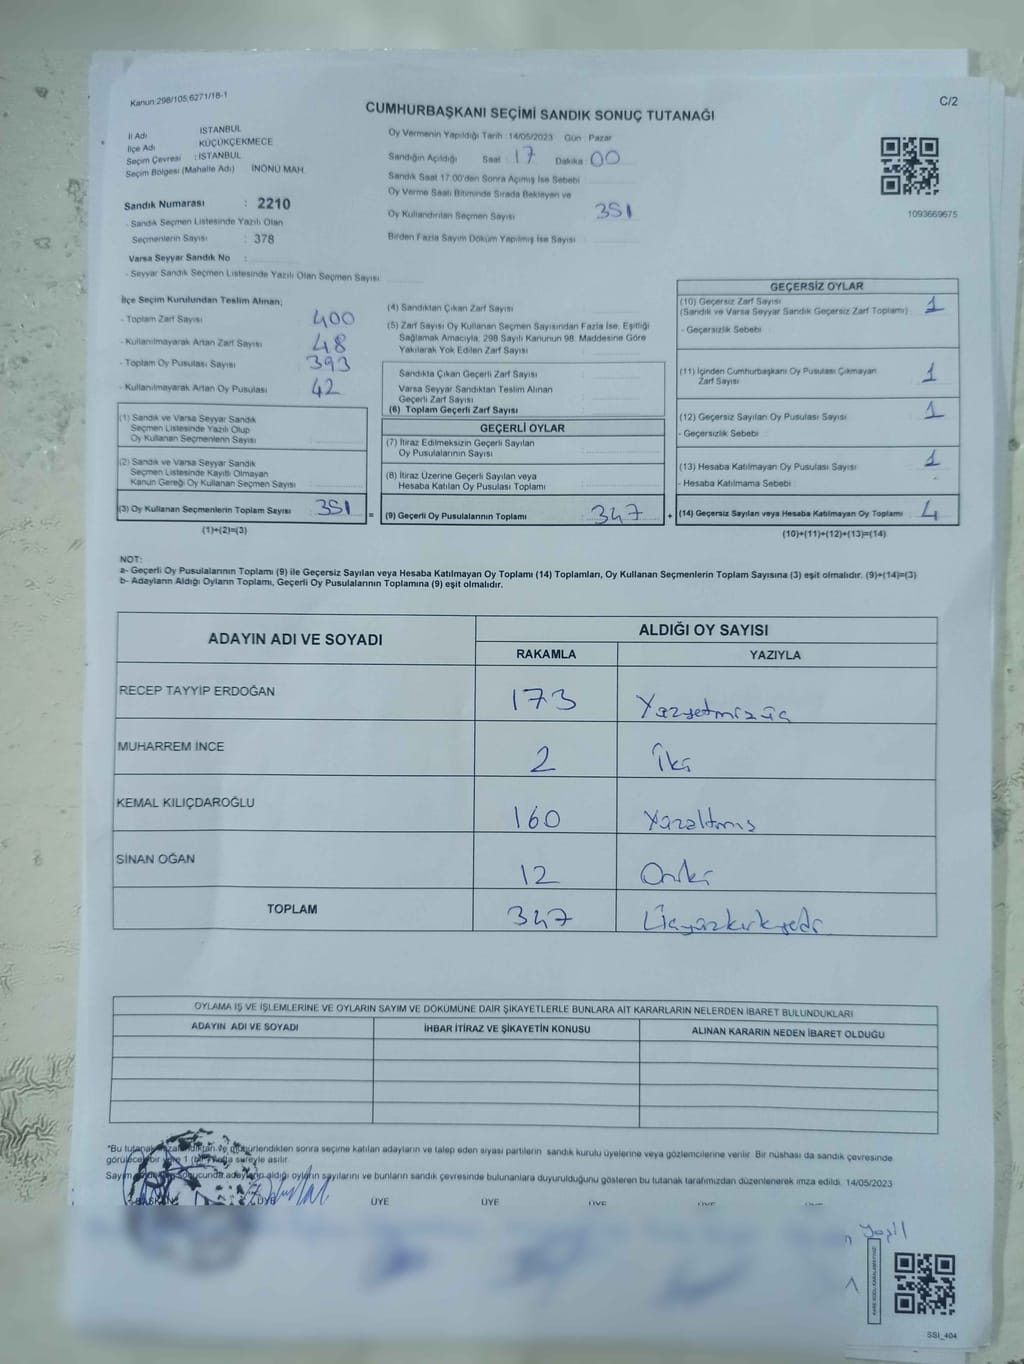 Kanun 298/105,6271/18-1
C/2
CUMHURBAŞKANI SEÇİMİ SANDIK SONUÇ TUTANAĞI
İl Adı İSTANBUL
İlçe Adı KÜÇÜKÇEKMECE
Seçim Çevresi : İSTANBUL
Seçim Bölgesi (Mahalle Adı) İNÖNÜ MAH.
Sandık Numarası : 2210
- Sandık Seçmen Listesinde Yazılı Olan
Seçmenlerin Sayısı : 378
Varsa Seyyar Sandık No :
- Seyyar Sandık Seçmen Listesinde Yazılı Olan Seçmen Sayısı
Oy Vermenin Yapıldığı Tarih : 14/05/2023 Gün : Pazar
Sandığın Açıldığı Saat : 17 Dakika : 00
Sandık Saat 17:00'den Sonra Açımış İse Sebebi
Oy Verme Saati Bitiminde Sırada Bekleyen ve
Oy Kullandırılan Seçmen Sayısı 351
Birden Fazla Sayım Döküm Yapılmış İse Sayısı
1093669675
İlçe Seçim Kurulundan Teslim Alınan;
- Toplam Zarf Sayısı 400
- Kullanılmayarak Artan Zarf Sayısı 48
- Toplam Oy Pusulası Sayısı 393
- Kullanılmayarak Artan Oy Pusulası 42
(1) Sandık ve Varsa Seyyar Sandık
Seçmen Listesinde Yazılı Olup
Oy Kullanan Seçmenlerin Sayısı
(2) Sandık ve Varsa Seyyar Sandık
Seçmen Listesinde Kayıtlı Olmayan
Kanun Gereği Oy Kullanan Seçmen Sayısı
(3) Oy Kullanan Seçmenlerin Toplam Sayısı 351 =
(1)+(2)=(3)
(4) Sandıktan Çıkan Zarf Sayısı
(5) Zarf Sayısı Oy Kullanan Seçmen Sayısından Fazla İse, Eşitliği
Sağlamak Amacıyla, 298 Sayılı Kanunun 98. Maddesine Göre
Yakılarak Yok Edilen Zarf Sayısı
Sandıkta Çıkan Geçerli Zarf Sayısı
Varsa Seyyar Sandıktan Teslim Alınan
Geçerli Zarf Sayısı
(6) Toplam Geçerli Zarf Sayısı
GEÇERLİ OYLAR
(7) İtiraz Edilmeksizin Geçerli Sayılan
Oy Pusulalarının Sayısı
(8) İtiraz Üzerine Geçerli Sayılan veya
Hesaba Katılan Oy Pusulası Toplamı
(9) Geçerli Oy Pusulalarının Toplamı 347 +
GEÇERSİZ OYLAR
(10) Geçersiz Zarf Sayısı 1
(Sandık ve Varsa Seyyar Sandık Geçersiz Zarf Toplamı)
- Geçersizlik Sebebi
(11) İçinden Cumhurbaşkanı Oy Pusulası Çıkmayan 1
Zarf Sayısı
(12) Geçersiz Sayılan Oy Pusulası Sayısı 1
- Geçersizlik Sebebi
(13) Hesaba Katılmayan Oy Pusulası Sayısı 1
- Hesaba Katılmama Sebebi
(14) Geçersiz Sayılan veya Hesaba Katılmayan Oy Toplamı 4
(10)+(11)+(12)+(13)=(14)
NOT:
a- Geçerli Oy Pusulalarının Toplamı (9) ile Geçersiz Sayılan veya Hesaba Katılmayan Oy Toplamı (14) Toplamları, Oy Kullanan Seçmenlerin Toplam Sayısına (3) eşit olmalıdır. (9)+(14)=(3)
b- Adayların Aldığı Oyların Toplamı, Geçerli Oy Pusulalarının Toplamına (9) eşit olmalıdır.
ADAYIN ADI VE SOYADI ALDIĞI OY SAYISI
RAKAMLA YAZIYLA
RECEP TAYYİP ERDOĞAN 173 Yüzyetmişüç
MUHARREM İNCE 2 İki
KEMAL KILIÇDAROĞLU 160 Yüzaltmış
SİNAN OĞAN 12 Oniki
TOPLAM 347 Üçyüzkırkyedi
OYLAMA İŞ VE İŞLEMLERİNE VE OYLARIN SAYIM VE DÖKÜMÜNE DAİR ŞİKAYETLERLE BUNLARA AİT KARARLARIN NELERDEN İBARET BULUNDUKLARI
ADAYIN ADI VE SOYADI İHBAR İTİRAZ VE ŞİKAYETİN KONUSU ALINAN KARARIN NEDEN İBARET OLDUĞU
*Bu tutanak sonra seçime katılan adayların ve talep eden siyasi partilerin sandık kurulu üyelerine veya gözlemcilerine verilir. Bir nüshası da sandık çevresinde
görülecek bir yere 1 (bir) hafta süreyle asılır.
Sayım sonucunda adayların aldığı oyların sayılarını ve bunların sandık çevresinde bulunanlara duyurulduğunu gösteren bu tutanak tarafımızdan düzenlenerek imza edildi. 14/05/2023
BAŞKAN ÜYE ÜYE ÜYE ÜYE ÜYE
SSI_404